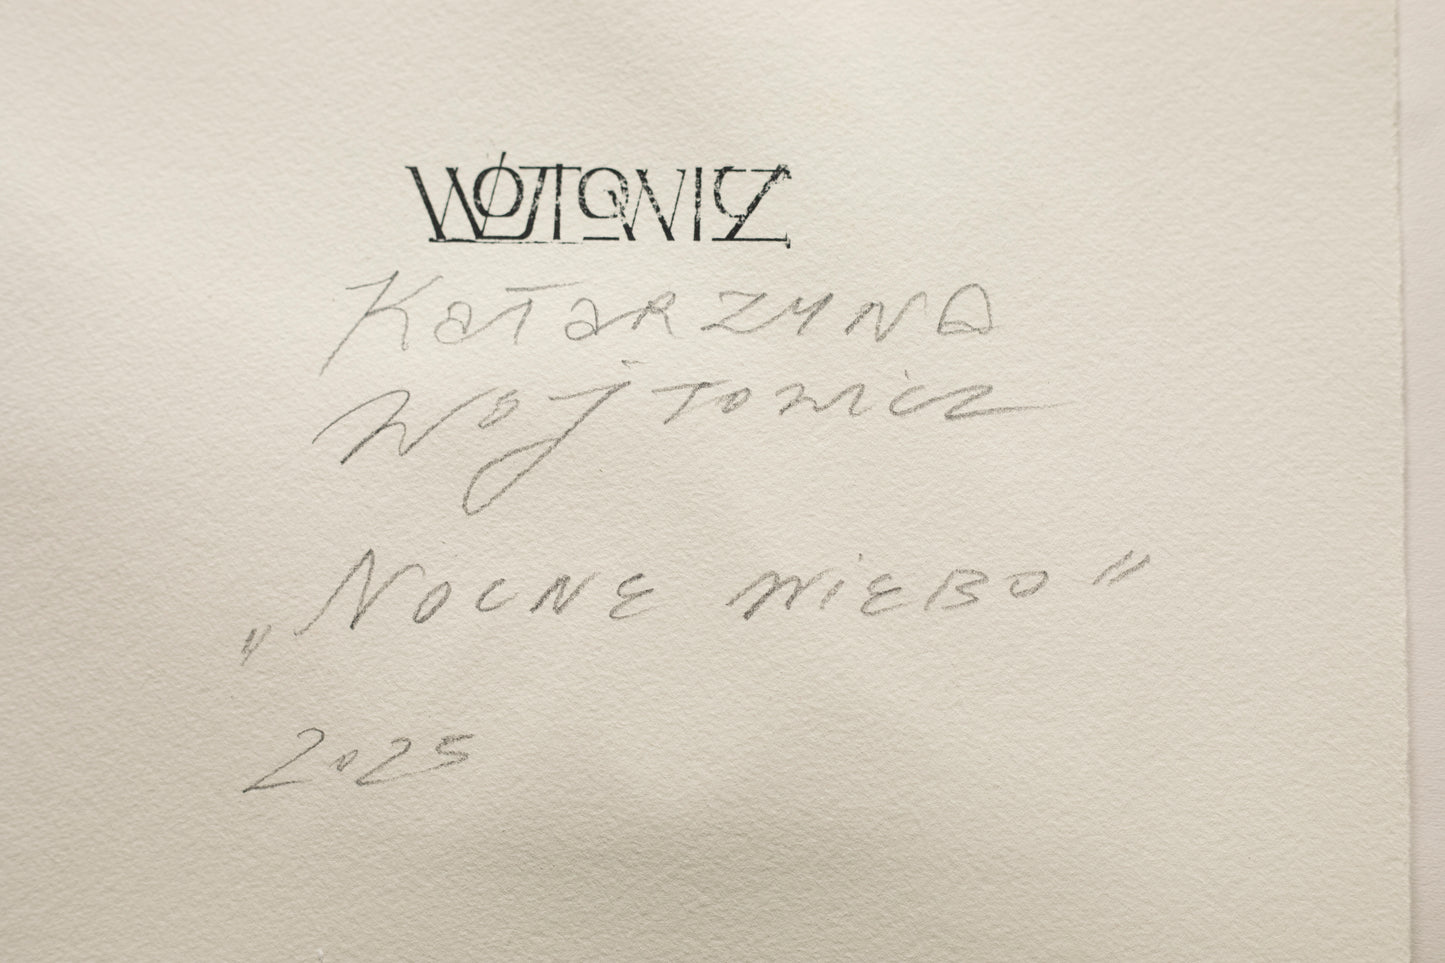 WÓJTOWICZ
Katarzyna
Wójtowicz
„Nocne niebo”
2025